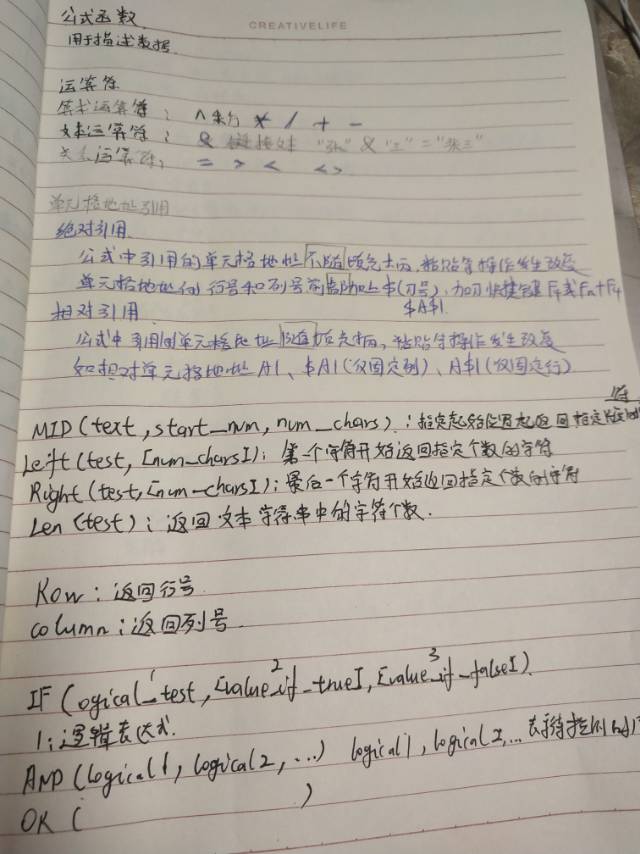 CREATIVELIFE
公式函数
用于描述数据
运算符
算术运算符: ^ 乘方 * / + -
文本运算符: & 链接文本 "张" & "三" = "张三"
关系运算符: = > < <>
单元格地址引用
绝对引用
公式中引用的单元格地址不随填充柄,粘贴等操作发生改变
单元格地址的行号和列号前都加上$(刀号),加刀快捷键F4或Fn+F4
$A$1
相对引用
公式中引用的单元格地址随填充柄,粘贴等操作发生改变
如相对单元格地址A1、$A1(仅固定列)、A$1(仅固定行)
符
MID(text,start_num,num_chars):指定起始位置起返回指定
Left(test,[num_chars]):第一个字符开始返回指定个数的字符
Right(test,[num_chars]):最后一个字符开始返回指定个数的字符
Len(test):返回文本字符串中的字符个数.
Row:返回行号
column:返回列号
1 2 3
IF(ogical_test,[value_if_true],[value_if_false])
1:逻辑表达式.
AND(logical1,logical2,...) logical1,logical2,...表示待
OR( )